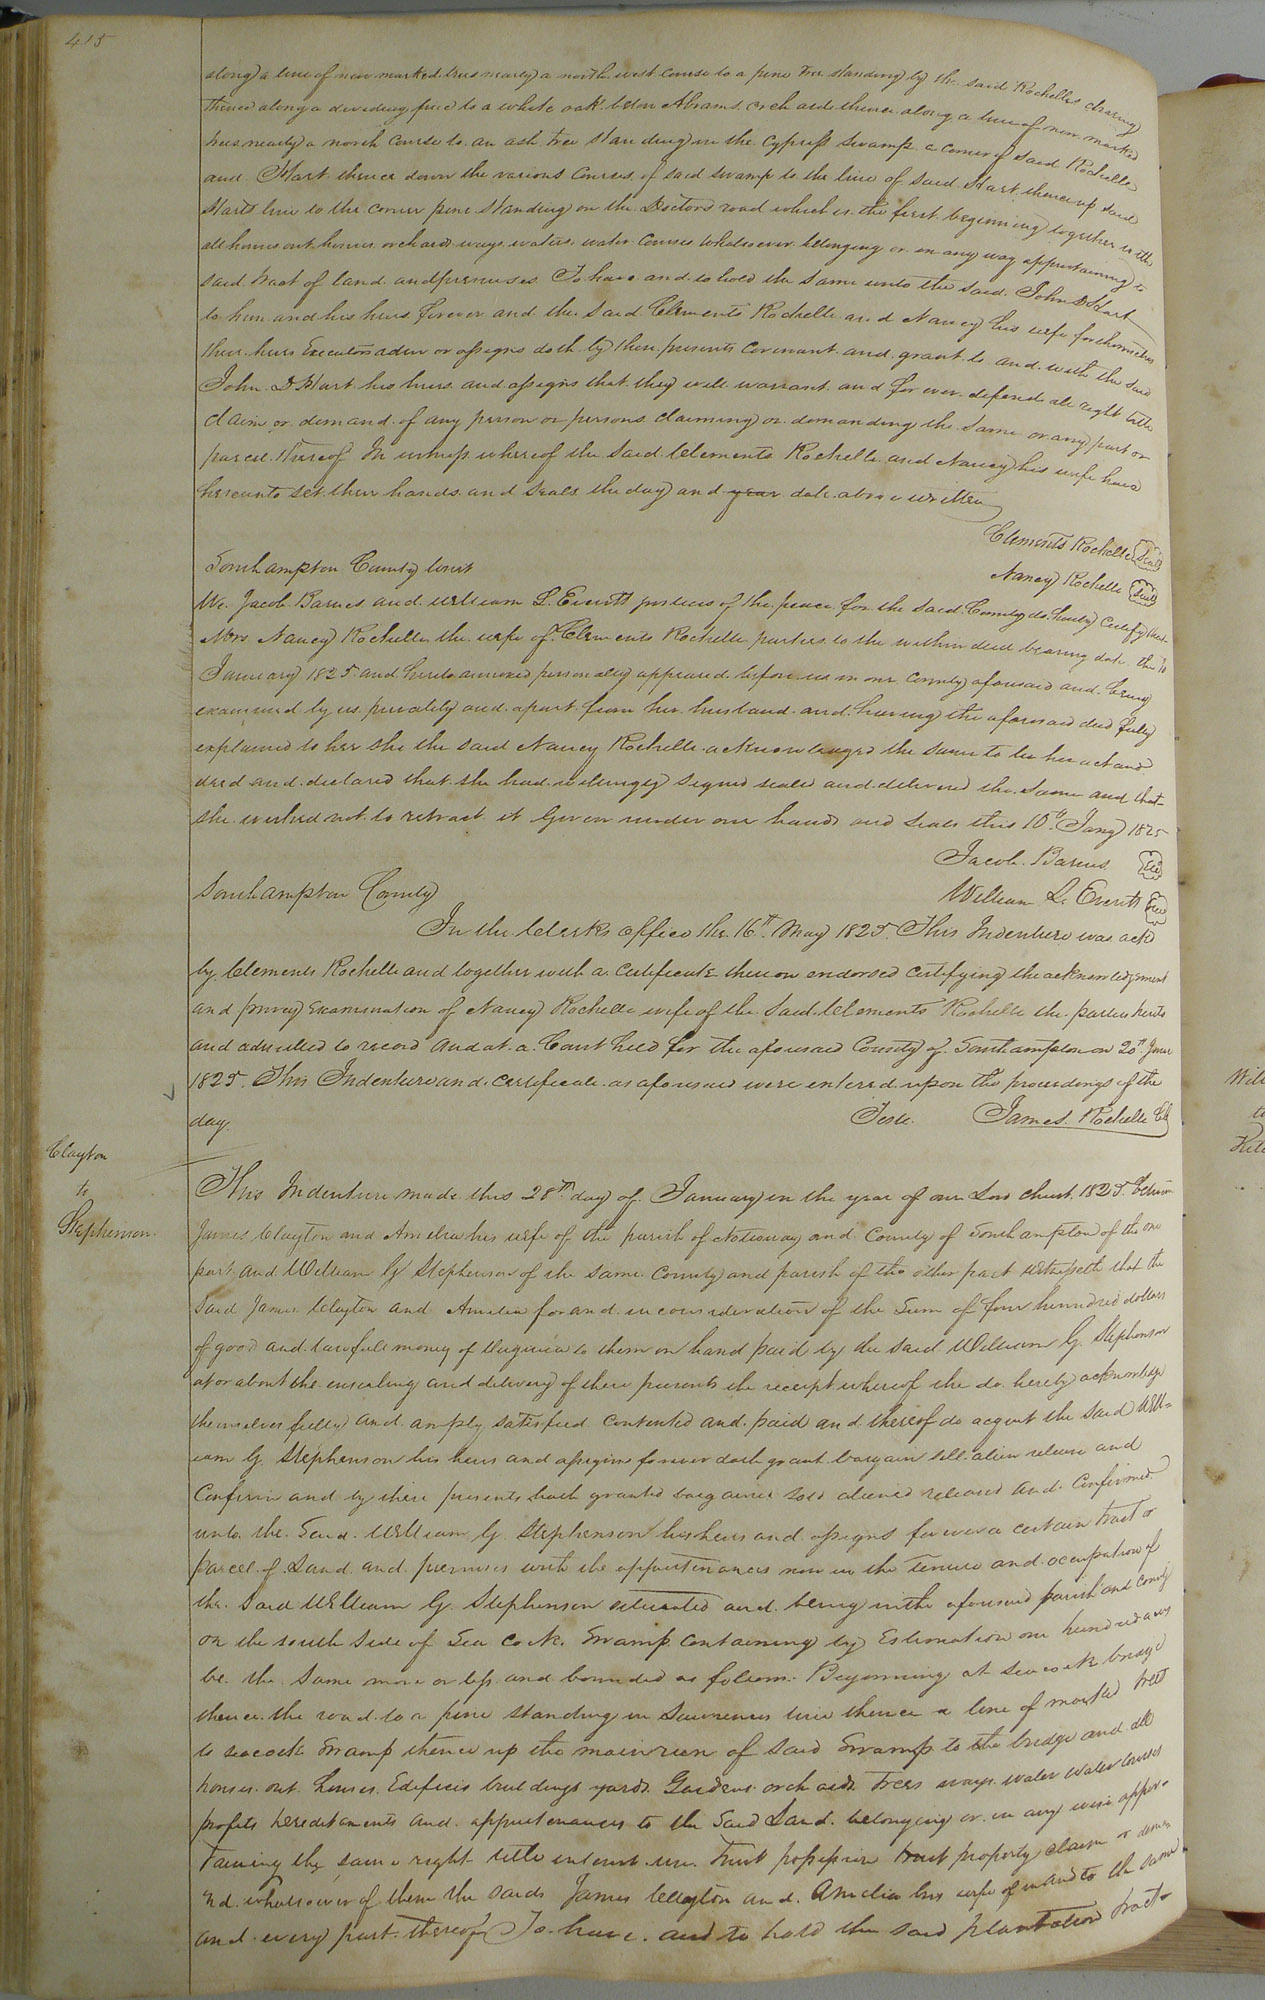 415
along a line of new marked trees nearly a north west course to a pine tree standing by the said Rochelles clearing
thence along a dividing fence to a white oak below Abrams orchard thence along a line of new marked
trees nearly a north course to an ash tree standing in the cypress swamp a corner of said Rochelle
and Hart thence down the various courses of said swamp to the line of said Hart thence up said
Harts line to the corner pine standing on the Doctors road which is the first beginning together with
all houses out houses orchard ways waters water courses whatsoever belonging or in any way appertaining to
said tract of land and premises To have and to hold the same unto the said John D Hart
to him and his heirs forever and the said Clements Rochelle and Nancy his wife for themselves
their heirs Executors adm or assigns doth by these presents covenant and grant to and with the said
John D Hart his heirs and assigns that they will warrant and for ever defend all right title
claim or demand of any person or persons claiming or demanding the same or any part or
parcel thereof In witness whereof the said Clements Rochelle and Nancy his wife have
hereunto set their hands and seals the day and year date above written
Clements Rochelle Seal
Southampton County Court
Nancy Rochelle Seal
We Jacob Barnes and William L. Everitt justices of the peace for the said County do hereby certify that
Mrs Nancy Rochelle the wife of Clements Rochelle parties to the within deed bearing date the 10
January 1825 and hereto annexed personally appeared before us in our County aforesaid and being
examined by us privately and apart from her husband and having the aforesaid deed fully
explained to her she the said Nancy Rochelle acknowledged the same to be her act and
deed and declared that she had willingly signed sealed and delivered the same and that
she wished not to retract it Given under our hands and seals this 10th Jany 1825
Jacob Barnes Seal
Southampton County
William L. Everitt Seal
In the Clerks office the 16th May 1825. This Indenture was ackd
by Clements Rochelle and together with a certificate thereon endorsed certifying the acknowledgement
and privy Examination of Nancy Rochelle wife of the said Clements Rochelle the parties hereto
and admitted to record and at a Court held for the aforesaid County of Southampton on 20th June
1825. This Indenture and certificate as aforesaid were entered upon the proceedings of the
day.
Teste. James Rochelle Clk
Clayton
to
Stephenson
This Indenture made this 28th day of January in the year of our Lord christ 1825. Between
James Clayton and Amelia his wife of the parish of Nottoway and County of Southampton of the one
part and William G Stephenson of the same County and parish of the other part witnesseth that the
said James Clayton and Amelia for and in consideration of the sum of four hundred dollars
of good and lawfull money of Virginia to them in hand paid by the said William G. Stephenson
at or about the ensealing and delivery of these presents the receipt whereof the do hereby acknowledge
themselves fully and amply satisfied contented and paid and thereof do acquit the said Will=
iam G. Stephenson his heirs and assigns forever doth grant bargain sell alien release and
Confirm and by these presents hath granted bargained sold aliened released and Confirmed
unto the Said William G Stephenson his heirs and assigns forever a certain tract or
parcel of Land and premises with the appurtenances now in the Tenure and occupation of
the Said William G. Stephenson situated and being in the aforesaid parish and county
on the south side of Sea cock Swamp containing by Estimation one hundred acres
be the same more or less and bounded as follows. Beginning at seacock bridge
thence the road to a pine standing in Lawrences line thence a line of marked trees
to seacock Swamp thence up the main run of said Swamp to the bridge and all
houses out houses Edifices buildings yards Gardens orchards Trees ways water water courses
profits hereditaments and appurtenances to the Said Land belonging or in any wise apper=
taining the same right title interest use trust possession trust property claim or dem
nd. whatsoever of them the saids James Clayton and Amelia his wife of in and to the same
and every part thereof To have and to hold the said plantation tract or